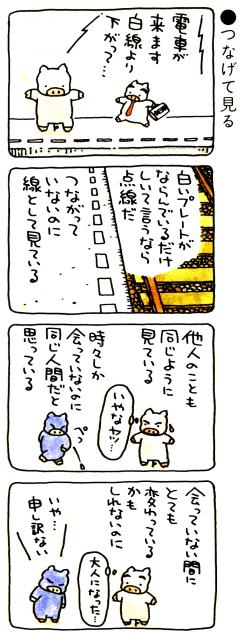 ●つなげて見る
電車が
来ます
白線より
下がって…
白いプレートが
ならんでいるだけ
しいて言うなら
点線だ
つながって
いないのに
線として見ている
他人のことも
同じように
見ている
時々しか
会っていないのに
同じ人間だと
思っている
いやなヤツ…
ぺっ
会っていない間に
とても
変わっている
かも
しれないのに
大人になった…
いや…
申し訳ない